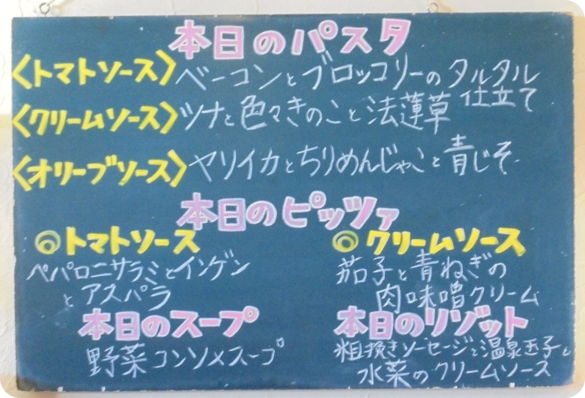 本日のパスタ
〈トマトソース〉ベーコンとブロッコリーのタルタル仕立て
〈クリームソース〉ツナと色々きのこと法蓮草
〈オリーブソース〉ヤリイカとちりめんじゃこと青じそ
本日のピッツァ
◎トマトソース
ペパロニサラミとインゲン
とアスパラ
◎クリームソース
茄子と青ねぎの
肉味噌クリーム
本日のスープ
野菜コンソメスープ
本日のリゾット
粗挽きソーセージと温泉玉子と
水菜のクリームソース